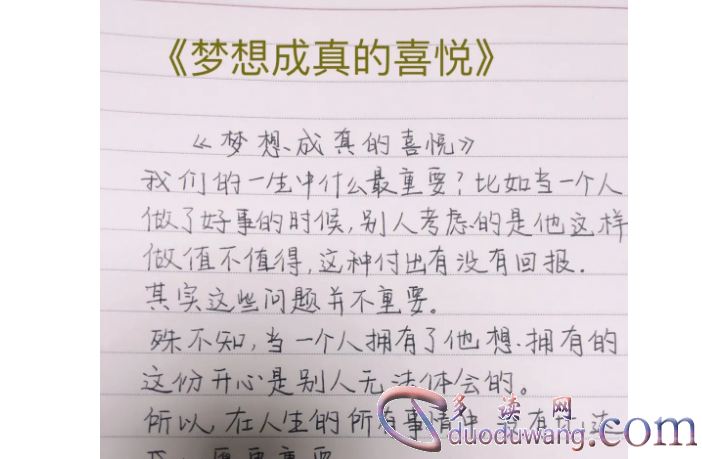 《梦想成真的喜悦》
《梦想成真的喜悦》
我们的一生中什么最重要？比如当一个人
做了好事的时候，别人考虑的是他这样
做值不值得，这种付出有没有回报.
其实这些问题并不重要。
殊不知，当一个人拥有了他想拥有的
这份开心是别人无法体会的。
所以，在人生的所有事情中，没有什么
多读网
duoduwang.com
重要